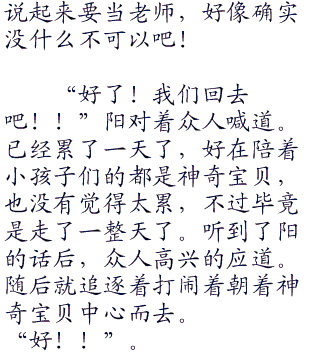 说起来要当老师，好像确实
没什么不可以吧！
“好了！我们回去
吧！！”阳对着众人喊道。
已经累了一天了，好在陪着
小孩子们的都是神奇宝贝，
也没有觉得太累，不过毕竟
是走了一整天了。听到了阳
的话后，众人高兴的应道。
随后就追逐着打闹着朝着神
奇宝贝中心而去。
“好！！”。